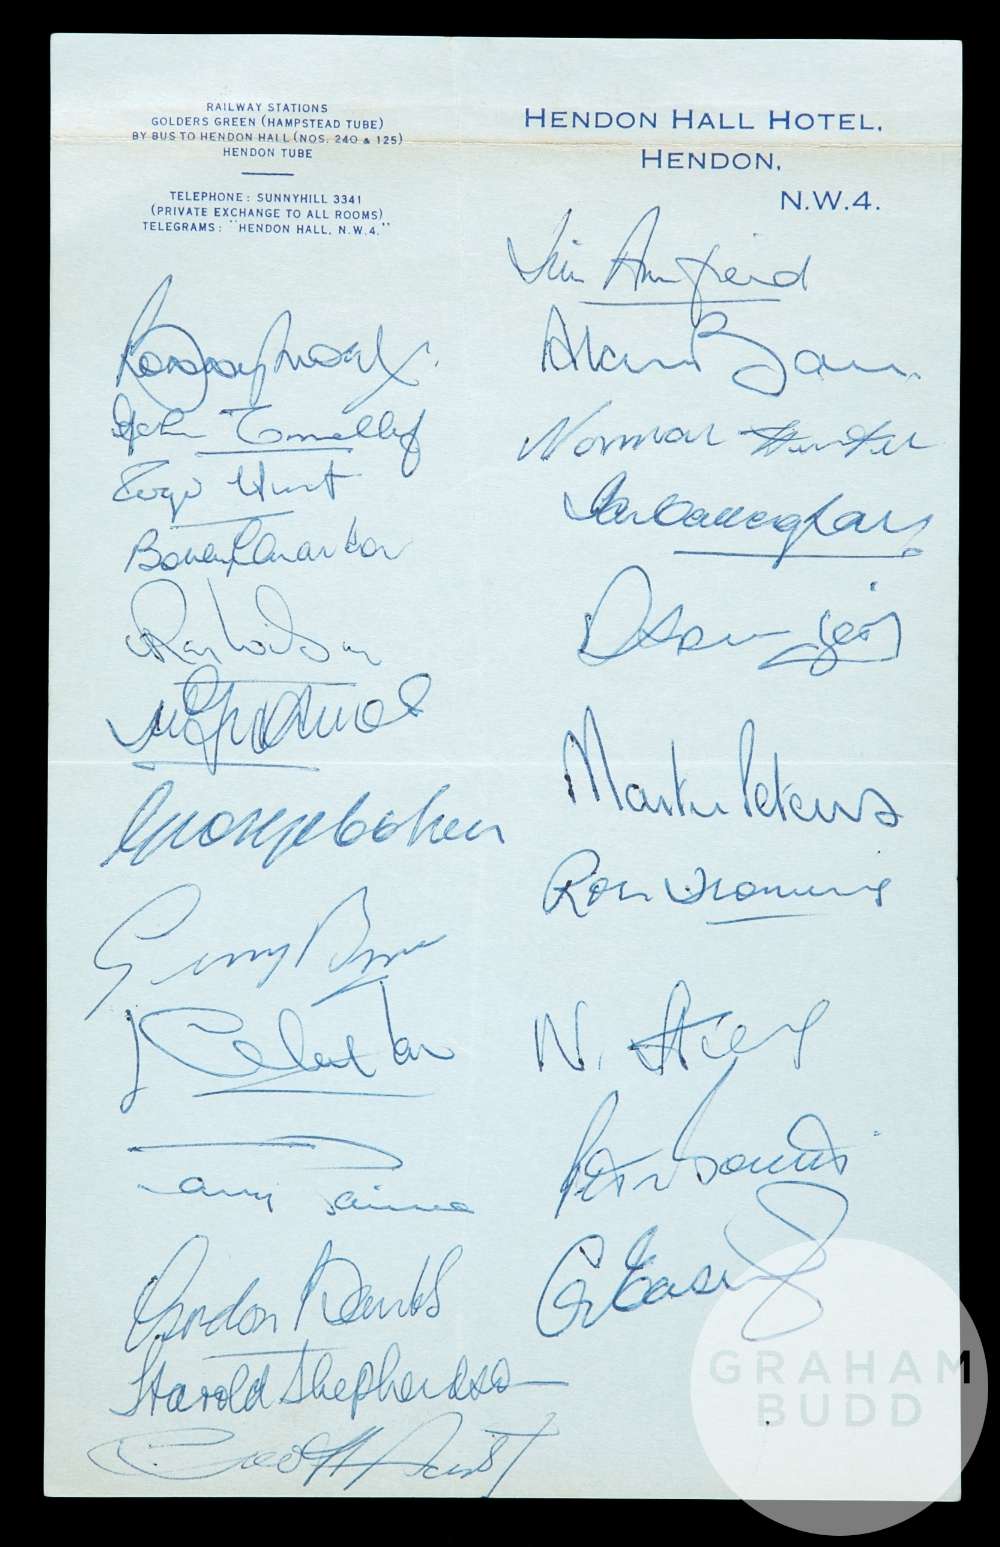 RAILWAY STATIONS
GOLDERS GREEN (HAMPSTEAD TUBE)
BY BUS TO HENDON HALL (NOS. 240 & 125)
HENDON TUBE
TELEPHONE: SUNNYHILL 3341
(PRIVATE EXCHANGE TO ALL ROOMS)
TELEGRAMS: "HENDON HALL, N.W.4."
HENDON HALL HOTEL,
HENDON,
N.W.4.
John Connelly
Roger Hunt
Bobby Charlton
Ray Wilson
George Cohen
Gerry Byrne
J Charlton
Terry Paine
Gordon Banks
Harold Shepherdson
Geoff Hurst
Jim Armfield
Alan Ball
Norman Hunter
Ian Callaghan
Martin Peters
Ron Springett
N. Stiles
Peter Bonetti
G. Eastham
GRAHAM
BUDD